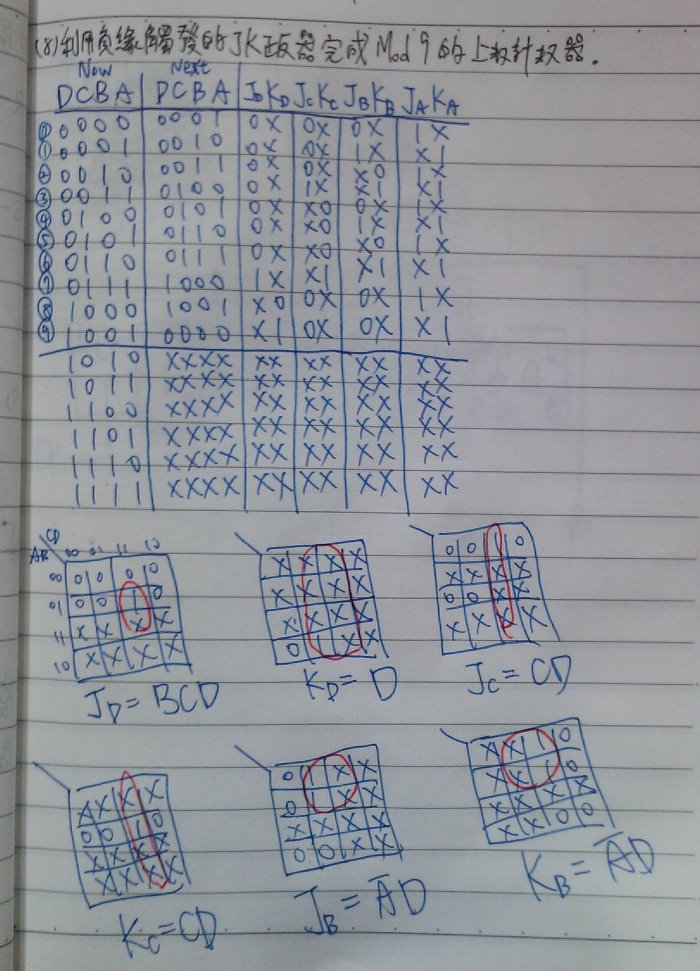 (8)利用負緣觸發的JK正反器完成Mod 9的上數計數器。
Now Next
DCBA DCBA J_D K_D J_C K_C J_B K_B J_A K_A
⓪ 0000 0001 0X 0X 0X 1X
① 0001 0010 0X 0X 1X X1
② 0010 0011 0X 0X X0 1X
③ 0011 0100 0X 1X X1 X1
④ 0100 0101 0X X0 0X 1X
⑤ 0101 0110 0X X0 1X X1
⑥ 0110 0111 0X X0 X0 1X
⑦ 0111 1000 1X X1 X1 X1
⑧ 1000 1001 X0 0X 0X 1X
⑨ 1001 0000 X1 0X 0X X1
1010 XXXX XX XX XX XX
1011 XXXX XX XX XX XX
1100 XXXX XX XX XX XX
1101 XXXX XX XX XX XX
1110 XXXX XX XX XX XX
1111 XXXX XX XX XX XX
CD
AB 00 01 11 10
00 0 0 0 0
01 0 0 1 0
11 X X X X
10 X X X X
J_D = BCD
X X X X
X X X X
X X X X
0 1 X X
K_D = D
0 0 1 0
X X X X
0 0 X X
X X X X
J_C = CD
X X X X
0 0 1 0
X X X X
X X X X
K_C = CD
0 1 X X
0 1 X X
X X X X
0 0 X X
J_B = A̅D
X X 1 0
X X 1 0
X X X X
X X 0 0
K_B = A̅D